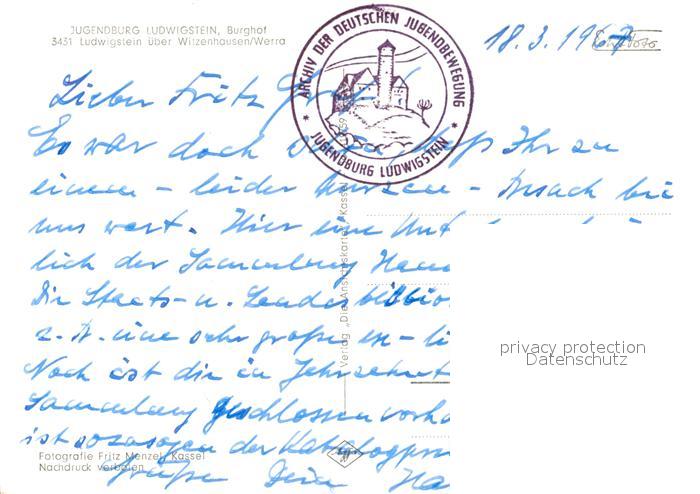 JUGENDBURG LUDWIGSTEIN, Burghof
3431 Ludwigstein über Witzenhausen/Werra
ARCHIV DER DEUTSCHEN JUGENDBEWEGUNG
* JUGENDBURG LUDWIGSTEIN *
18.3.1967
Lieber Fritz
Es war doch schön, daß Ihr zu
einem - leider kurzen - Besuch bei
uns wart. Hier eine
lich der Sammlung
Die Staats- u. Landesbiblio
z. B. eine sehr große
Noch ist die in Jahrzehnt
Sammlung geschlossen vorha
ist sozusagen der Katalog
Grüße Dein Ha
Verlag „Die Ansichtskarte", Kassel
privacy protection
Datenschutz
Fotografie Fritz Menzel, Kassel
Nachdruck verboten